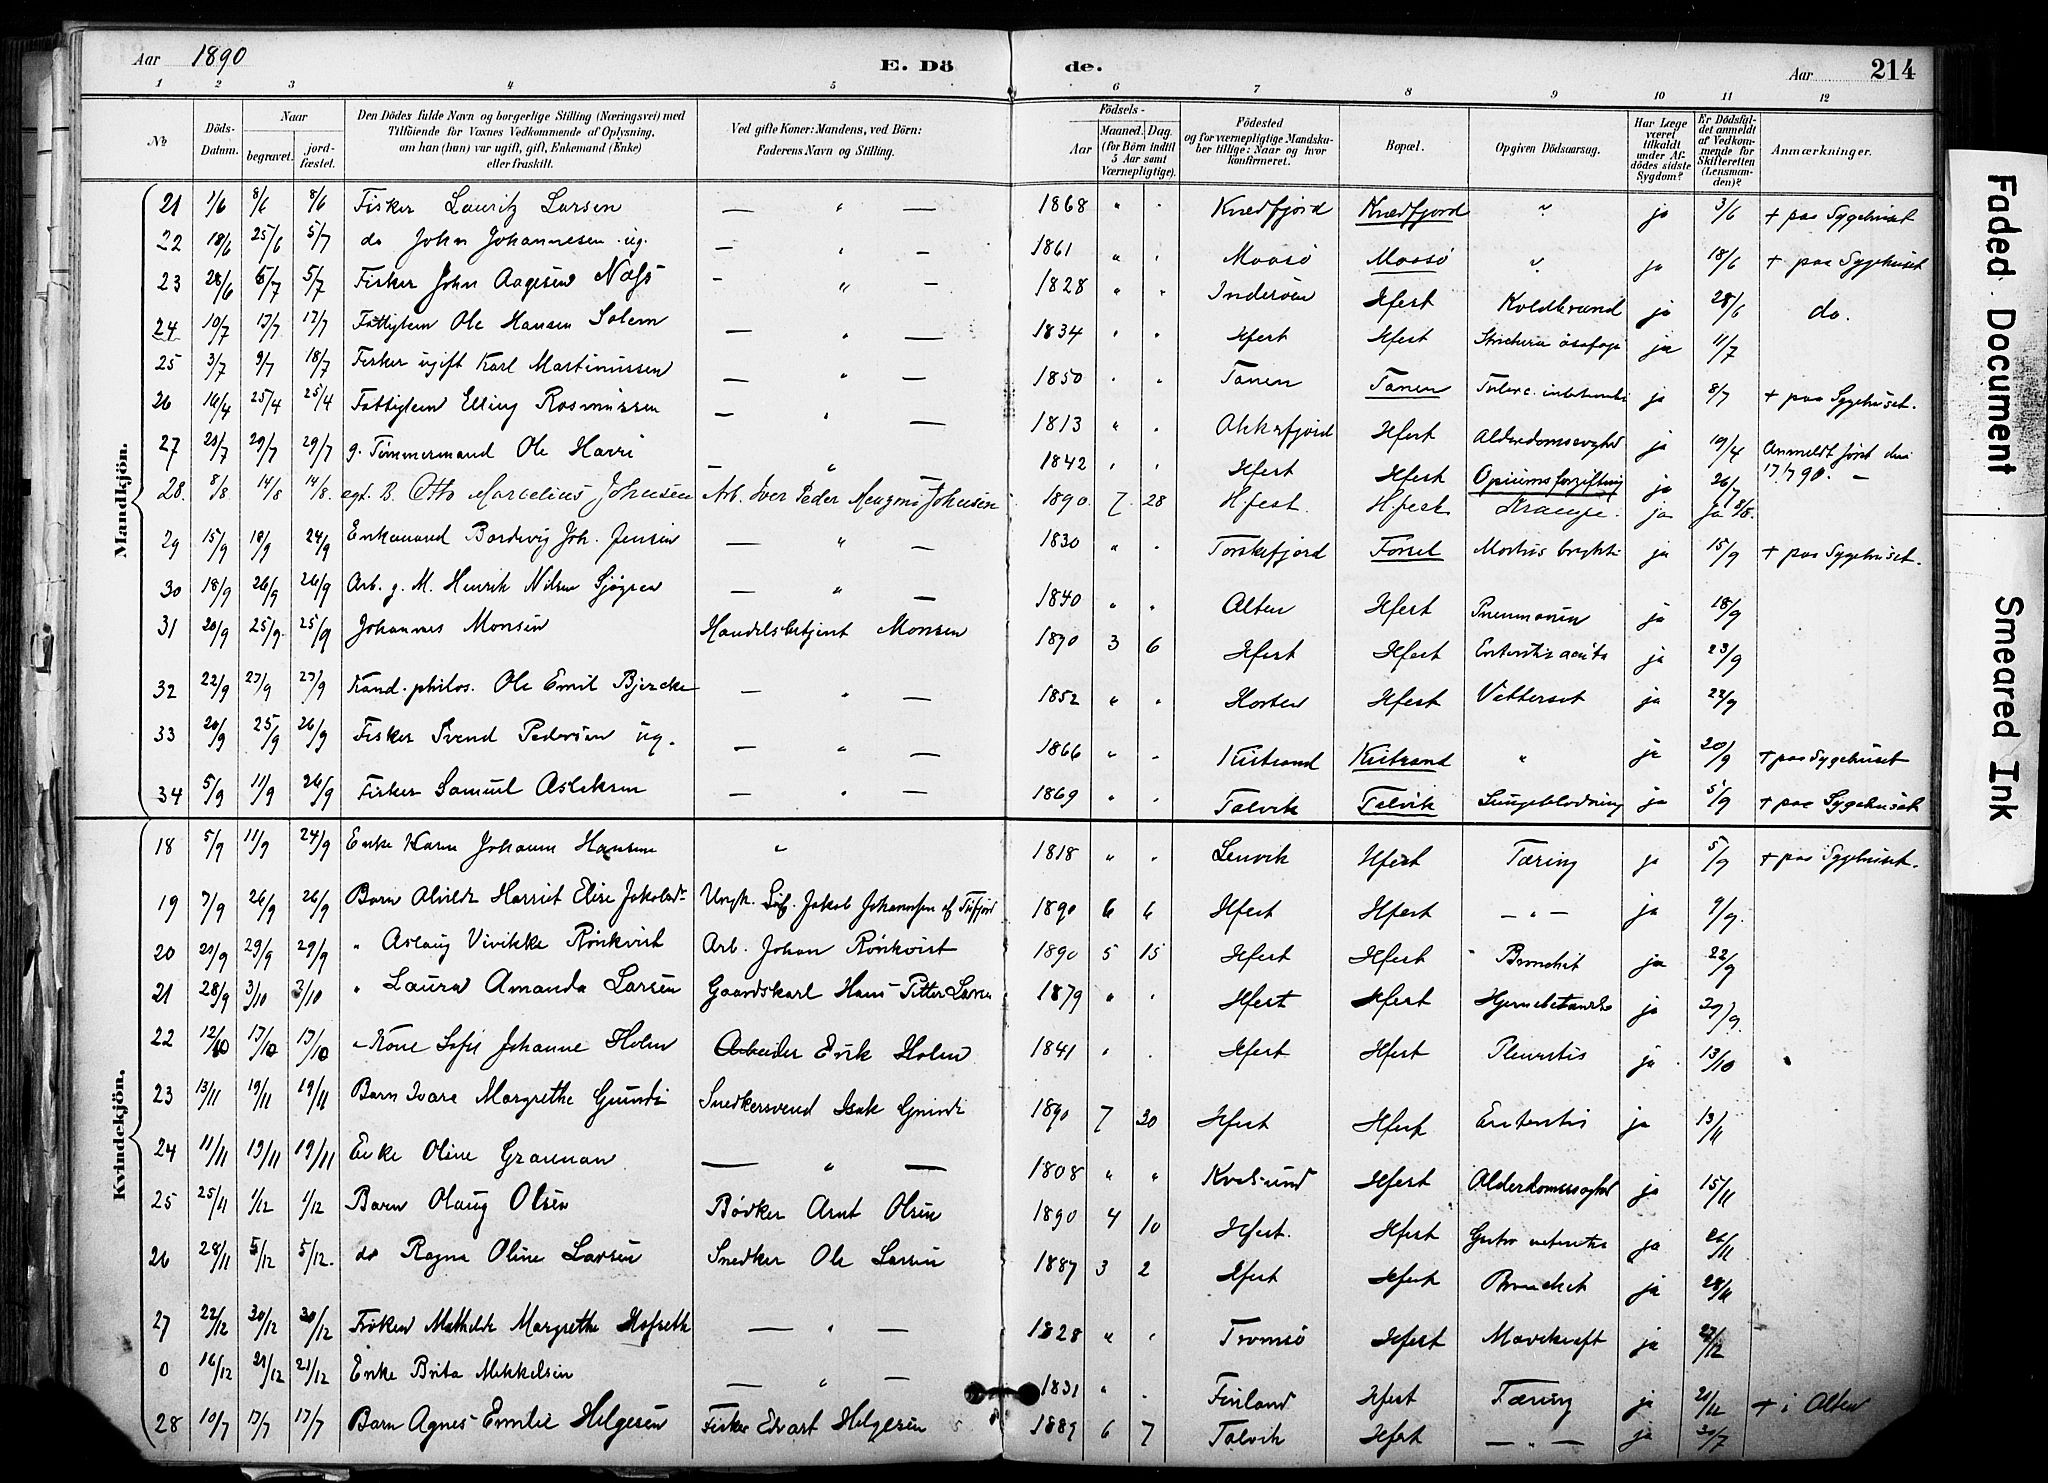 Aar 1890 E. Döde. Aar 214
1 2 3 4 5 6 7 8 9 10 11 12
No. Döds-Datum. Naar begravet. jordfæstet. Den Dödes fulde Navn og borgerlige Stilling (Næringsvei) med Tilföiende for Voxnes Vedkommende af Oplysning, om han (hun) var ugift, gift, Enkemand (Enke) eller fraskilt. Ved gifte Koner: Mandens, ved Börn: Faderens Navn og Stilling. Födsels- Aar Maaned. Dag. (for Börn indtil 5 Aar samt Værnepligtige). Födested og for værnepligtige Mandskaber tillige: Naar og hvor konfirmeret. Bopæl. Opgiven Dödsaarsag. Har Læge været tilkaldt under Afdödes sidste Sygdom? Er Dödsfaldet anmeldt af Vedkommende for Skifteretten (Lensmanden)? Anmærkninger.
Mandkjön.
21 1/6 8/6 8/6 Fisker Lauritz Larsen — " — 1868 " " Kvedfjord Kvedfjord " ja 3/6 + paa Sygehuset
22 18/6 25/6 5/7 do John Johannesen ug. — " 1861 " " Maasö Maasö " ja 18/6 + paa Sygehuset
23 28/6 5/7 5/7 Fisker John Aagesen Næss — " — 1828 " " Inderöen Hfest Koldbrand ja 28/6 do.
24 10/7 17/7 17/7 Fattiglem Ole Hansen Solem — " — 1834 " " Hfest Hfest ja 11/7
25 3/7 9/7 18/7 Fisker ugift Karl Martinussen — " — 1850 " " Tanen Tanen ja 8/7 + paa Sygehuset.
26 25/4 25/4 Fattiglem Elling Rasmussen — " — 1813 " " Akkafjord Hfest Alderdomssvaghed ja 19/4 Anmeldt först den 17/7 90.
27 21/7 29/7 29/7 g. Tømmermand Ole Havri — " — 1842 " " Hfest Hfest Opiumsforgiftning ja 26/7
28. 8/8 14/8 14/8. egf. B. Otto Marcelius Johnsen Arb. Iver Peder Magnus Johnsen 1890 7 28 Hfest. Hfest Krampe. ja Ja 9/8.
29 15/9 18/9 24/9 Enkemand Bordevig Joh. Jensen — " — 1830 " " Torskefjord Forsøl Morbus brightii ja 15/9 + paa Sygehuset.
30 18/9 26/9 26/9 Arb. g. M. Henrik Nilsen Sjøgren — " — 1840 " " Alten Hfest Pneumonien ja 18/9
31 20/9 25/9. 25/9 Johannes Monsen Handelsbetjent Monsen 1890 3 6 Hfest Hfest Enteritis acuta ja 23/9
32 22/9 27/9 27/9 Kand. philos. Ole Emil Bjercke — " — 1852 " " Horten Hfest Vattersot ja 22/9
33 20/9 25/9 26/9 Fisker Svend Pedersen ug. — " — 1866 " " Kistrand Kistrand " ja 20/9 + paa Sygehuset
34 5/9 11/9 26/9 Fisker Samuel Aslaksen — " — 1869 " " Talvik Talvik Lungeblodning ja 5/9 + paa Sygehuset
Kvindekjön.
18 5/9 11/9 24/9 Enke Karen Johanne Hansen " 1818 " " Lenvik Hfest Tæring ja 5/9 + paa Sygehuset.
19 7/9 26/9 26/9 Barn Alvilde Harriet Elise Jakobsd- Ungk. Jakob Johannsen af 1890 6 6 Hfest Hfest — " — ja 9/9.
20 21/9 29/9 29/9 " Aslaug Vivikke Rönkvist Arb. Johan Rönkvist 1890 5 15 Hfest Hfest Bronchit ja 22/9
21 28/9 3/10 3/10 " Laura Amanda Larsen Gaardskarl Hans Petter Larsen 1879 " " Hfest Hfest Hjernebetændelse ja 29/9.
22 12/10 17/10 17/10 " Kone Sofie Johanne Holm Arbeider Erik Holm 1841 " " Hfest Hfest Pleuritis ja 13/10
23 13/11 19/11 19/11 Barn Ivara Margrethe Gundi Snedkersvend Isak 1890 7 30 Hfest Hfest Enteritis ja 13/11
24 11/11 19/11 19/11 Enke Oline Granman — " — 1808 " " Kvalsund Hfest Alderdomssvaghed ja 15/11
25 25/11 1/12 1/12 Barn Olaug Olsen Bödker Arnt Olsen 1890 4 10 Hfest. Hfest Gastro enteritis ja 26/11
26 28/11 5/12 5/12. do Ragna Oline Larsen Snedker Ole Larsen 1887 3 2 Hfest Hfest Bronchit ja 28/11
27 22/12 30/12 30/12 Frøken Mathilde Margrethe Hofseth — " — 1828 " " Tromsö Hfest Mavekræft ja 27/12
0 16/12 21/12 21/12 Enke Brita Mikkelsen — " — 1831 " " Finland Hfest Tæring ja 21/12 + i Alten
28 10/7 17/7 17/7 Barn Agnes Emilie Helgesen Fisker Edvart Helgesen 1889 6 7 Talvik Hfest — " — ja 30/7
Faded Document
Smeared Ink